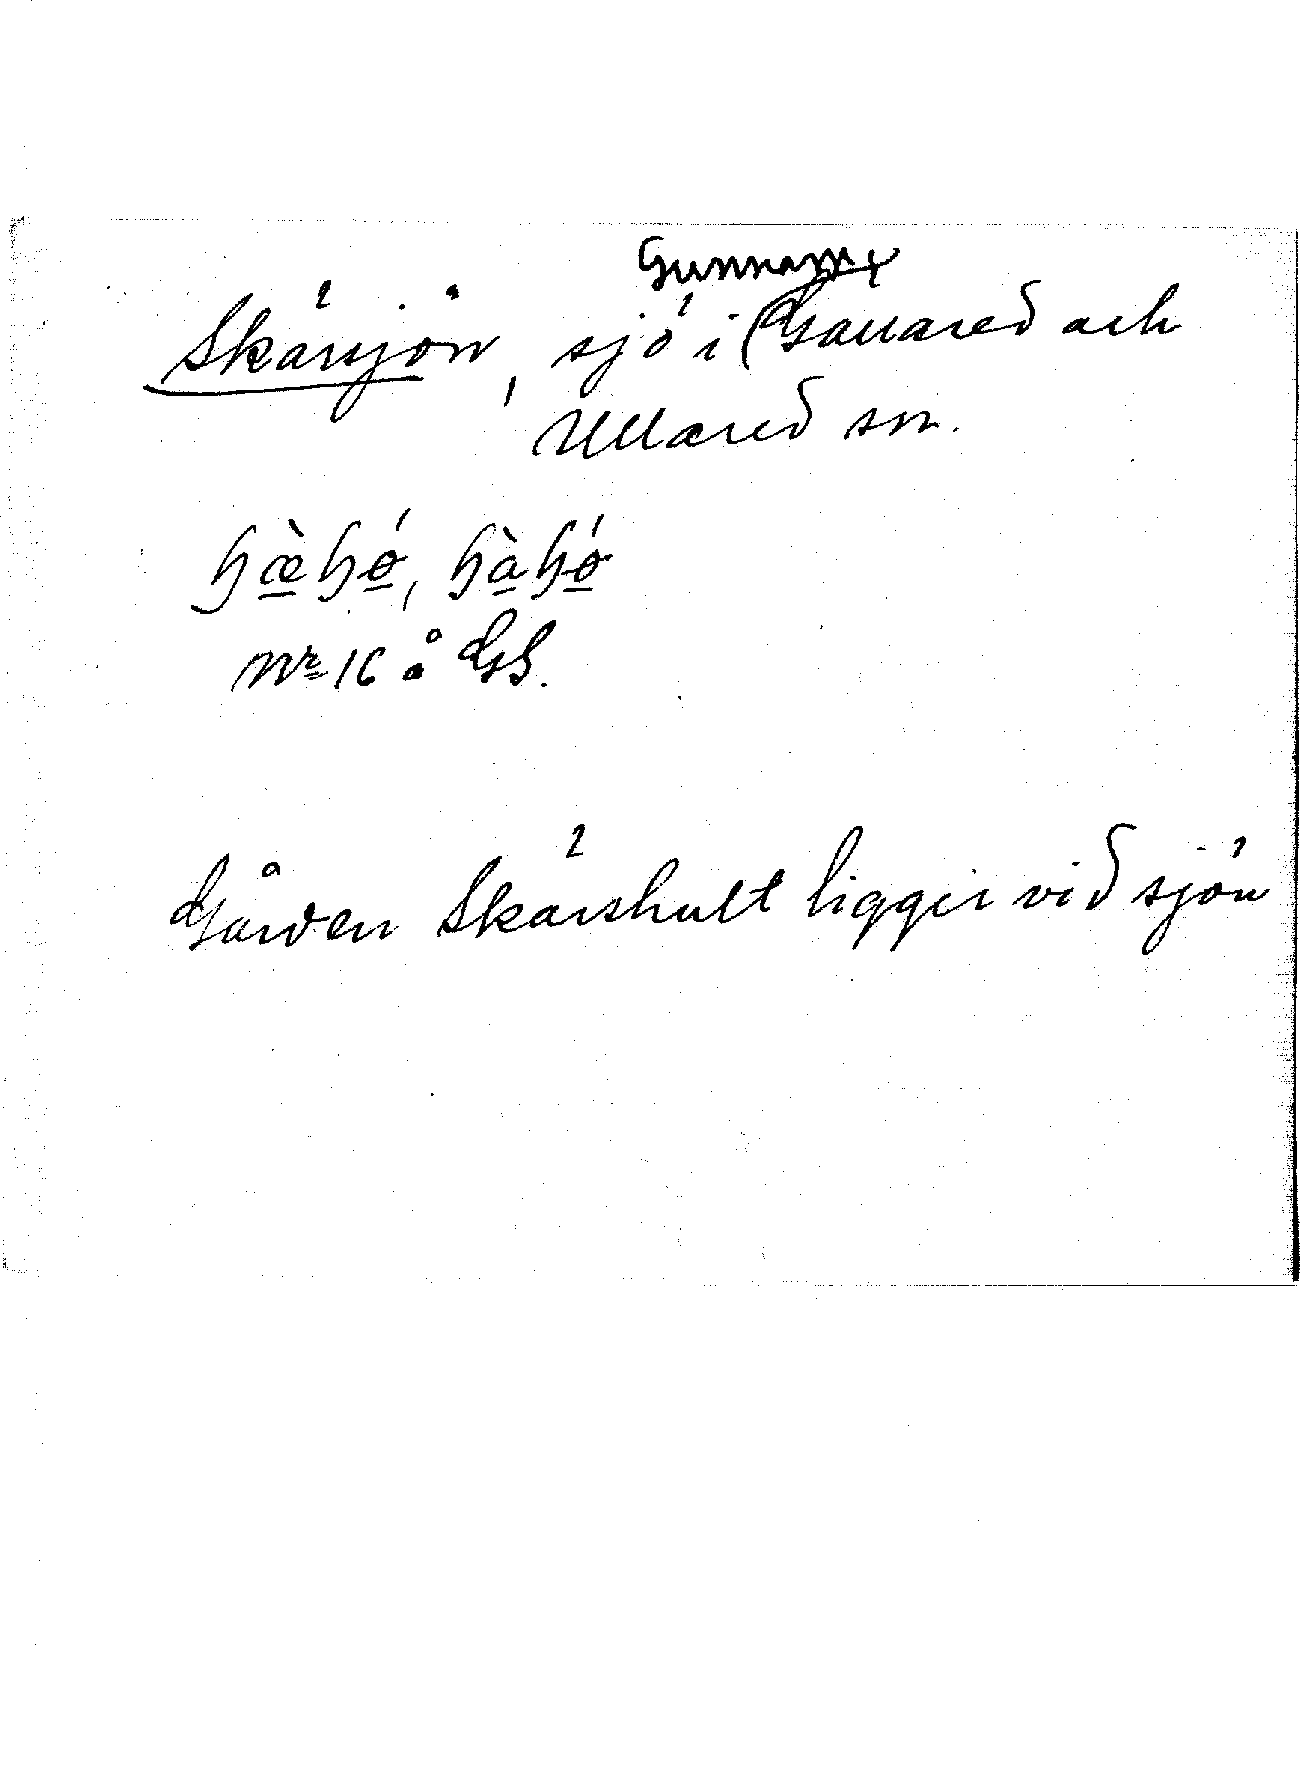 Gunnarp
Skärsjön, sjö i (Gällared och
Ullared sn.
ɧæ̀ɧǿ, ɧàɧǿ
Nr 16 å GS.
Gården Skärshult ligger vid sjön